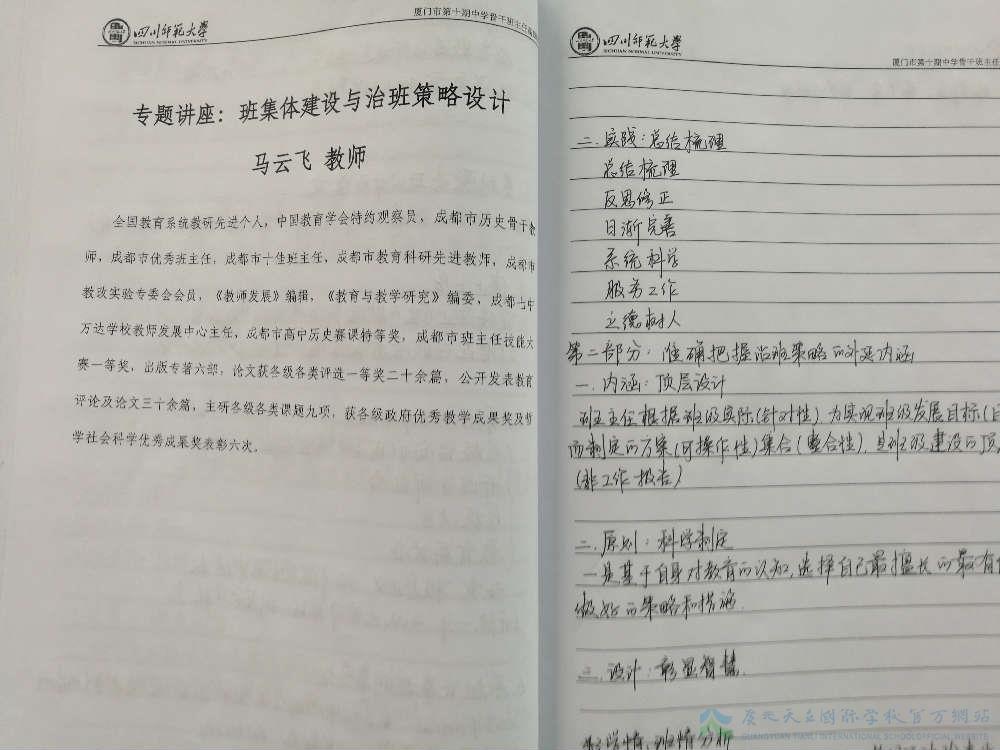 四川师范大学
SICHUAN NORMAL UNIVERSITY
厦门市第十期中学骨干班主任
专题讲座：班集体建设与治班策略设计
马云飞 教师
全国教育系统教研先进个人，中国教育学会特约观察员，成都市历史骨干教
师，成都市优秀班主任，成都市十佳班主任，成都市教育科研先进教师，成都市
教改实验专委会会员，《教师发展》编辑，《教育与教学研究》编委，成都七中
万达学校教师发展中心主任，成都市高中历史赛课特等奖，成都市班主任技能大
赛一等奖，出版专著六部，论文获各级各类评选一等奖二十余篇，公开发表教育
评论及论文三十余篇，主研各级各类课题九项，获各级政府优秀教学成果奖及哲
学社会科学优秀成果奖表彰六次。
四川师范大学
SICHUAN NORMAL UNIVERSITY
厦门市第十期中学骨干班主任
二.实践：总结梳理
总结梳理
反思修正
日渐完善
系统科学
服务工作
立德树人
第二部分：准确把握治班策略的外延内涵
一.内涵：顶层设计
班主任根据班级实际(针对性)为实现班级发展目标(目
而制定的方案(可操作性)集合(整合性),是班级建设的顶
(非工作报告)
二.原则：科学制定
一是基于自身对教育的认知,选择自己最擅长的最有
做好的策略和措施.
三.设计：彰显智慧.
学情,班情分析
广元天立国际学校官方网站
GUANGYUAN TIANLI INTERNATIONAL SCHOOL OFFICIAL WEBSITE